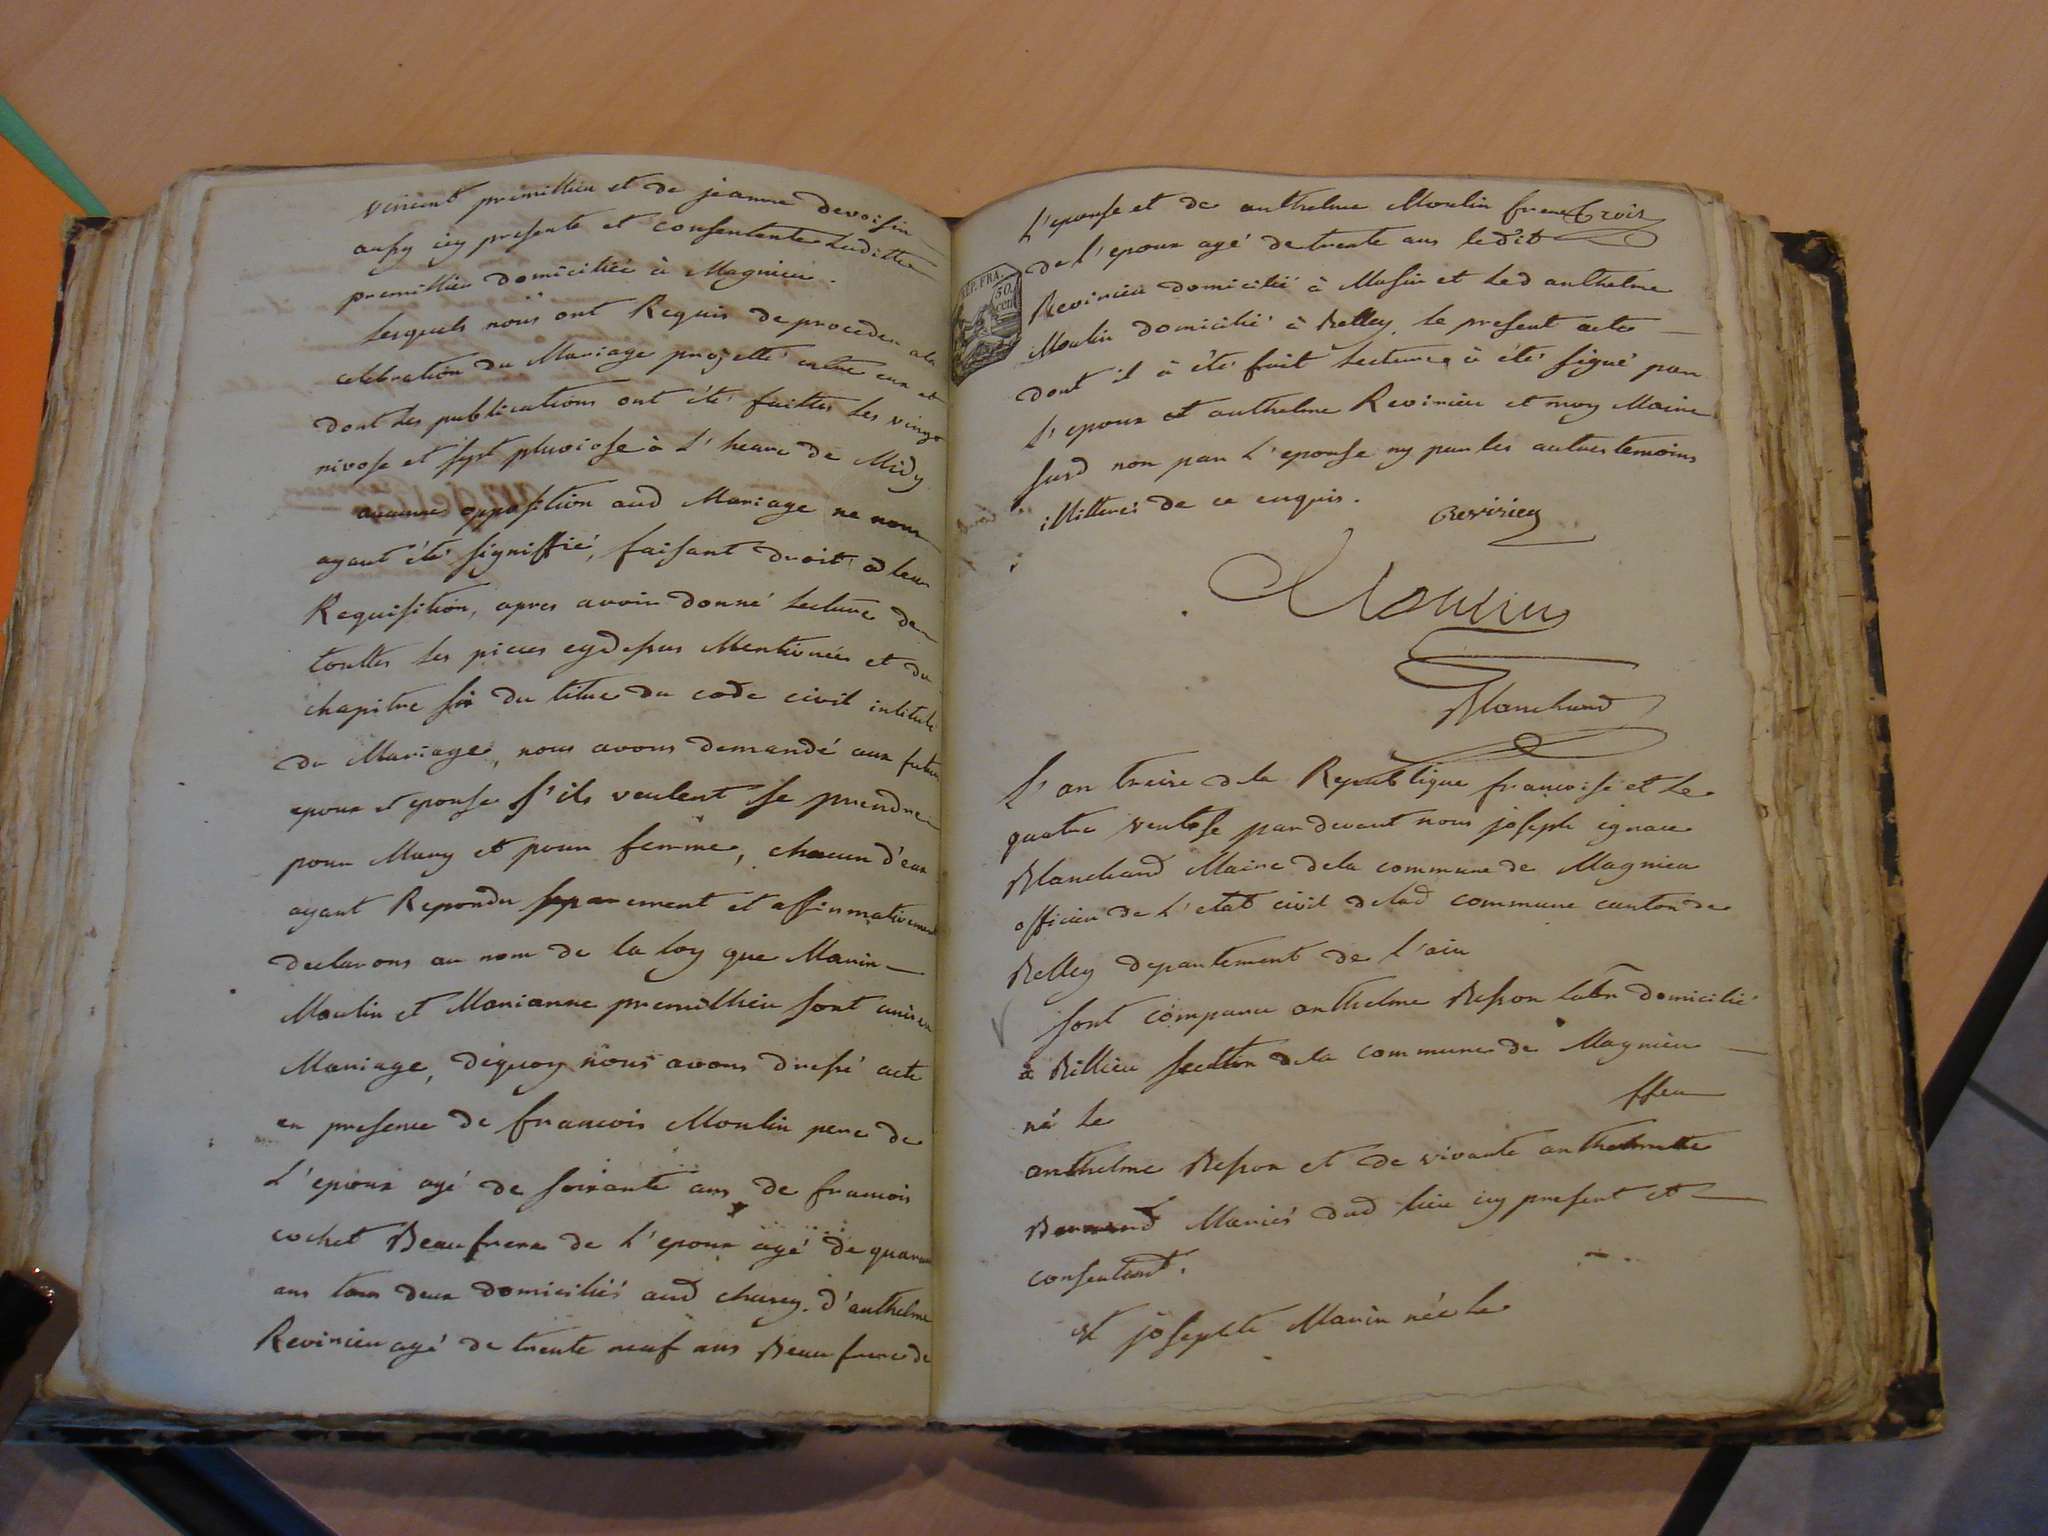 vincent premillieu et de jeanne devoisin
aussy icy presente et consentente Laditte
premillieu domiciliée à Magnieu.
Lesquels nous ont Requis de proceder a la
celebration du Mariage projetté entre eux et
dont les publications ont étés faittes les vingt
nivose et sept pluviose à L'heure de Midy
aucune opposition aud Mariage ne nous
ayant été signiffié, faisant droit a leur
Requisition, apres avoir donné Lecture de
touttes les pieces cydessus Mentionées et du
chapitre six du titre du code civil intitulé
du Mariage, nous avons demandé aux futur
epoux et epouse s'ils veulent se prendre
pour Mary et pour femme, chacun d'eux
ayant Repondu separement et affirmativement
declarons au nom de la loy que Marin
Moulin et Marianne premillieu sont unis en
Mariage, dequoy nous avons dressé acte
en presence de francois Moulin pere de
L'epoux agé de soixante ans de francois
cochet Beaufrere de L'epoux agé de quarante
ans tous deux domiciliés aud charey. d'anthelme
Revirieu agé de trente neuf ans Beau frere de
L'epouse et de anthelme Moulin frere trois
de L'epoux agé de trente ans ledit
REP. FRA.
50.
cent
Revirieu domicilié à Musin et Led anthelme
Moulin domicilié à Belley. Le present acte
dont il à été fait Lecture à été signé par
L'epoux et anthelme Revirieu et moy Maire
susd non par L'epouse ny par les autres temoins
illitterés de ce enquis.
Revirieu
Moulin
Blanchard
L'an treize de la Republique francoise et le
quatre ventose par devant nous joseph ignace
Blanchard Maire dela commune de Magnieu
officier de L'etat civil delad commune canton de
Belley departement de l'ain
sont comparu anthelme Besson labr domicilié
à Billieu section dela commune de Magnieu
né le ffeu
anthelme Besson et de vivante anthelmette
Bernard Mariés dud lieu icy present et
consentant.
et josephte Marin née le